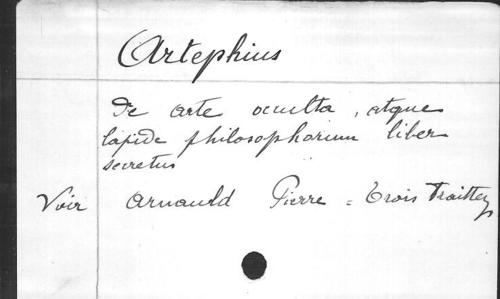 Artephius
De arte occulta, atque
lapide philosophorum liber
secretus
Voir Arnauld Pierre = Trois Traittez